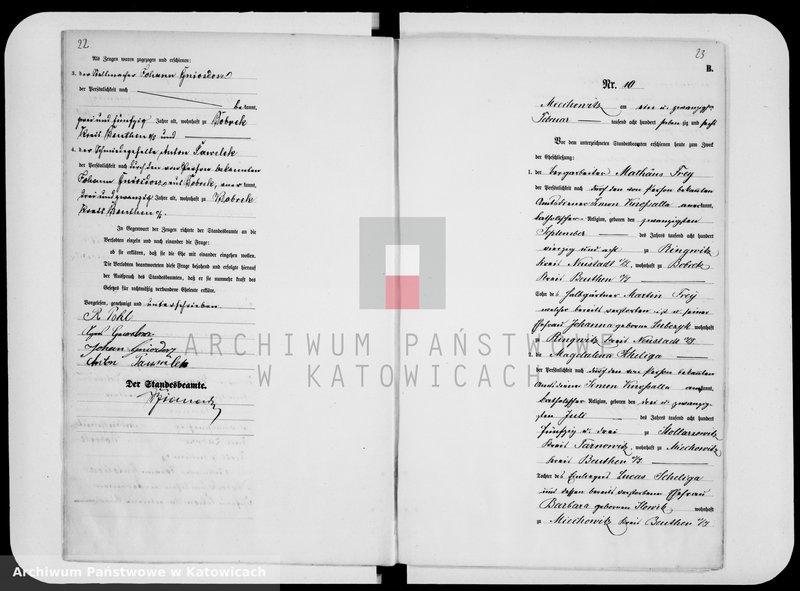 22
Als Zeugen waren zugezogen und erschienen:
3. der Stellmacher Johann Gnieidorz
der Persönlichkeit nach
be kannt,
zwei und fünfzig Jahre alt, wohnhaft zu Bobrek
Kreis Beuthen o/s und
4. der Schmiedegeselle Anton Pawelek
der Persönlichkeit nach durch den von Person bekannten
Johann aus Bobrek, aner kannt,
drei und zwanzig Jahre alt, wohnhaft zu Bobrek
Kreis Beuthen o/s.
In Gegenwart der Zeugen richtete der Standesbeamte an die
Verlobten einzeln und nach einander die Frage:
ob sie erklären, daß sie die Ehe mit einander eingehen wollen.
Die Verlobten beantworteten diese Frage bejahend und erfolgte hierauf
der Ausspruch des Standesbeamten, daß er sie nunmehr kraft des
Gesetzes für rechtmäßig verbundene Eheleute erkläre.
Vorgelesen, genehmigt und unterschrieben
R Pohl
Johann
Anton Pawelek
Der Standesbeamte.
23
B.
Nr. 10
Miechowitz am vier u. zwanzigsten
Februar tausend acht hundert siebenzig und sechs
Vor dem unterzeichneten Standesbeamten erschienen heute zum Zweck
der Eheschließung:
1. der Bergarbeiter Mathäus Frey
der Persönlichkeit nach durch den von Person bekannten
Amtsdiener Simon Kinossalla anerkannt,
katholischer Religion, geboren den zwanzigsten
September des Jahres tausend acht hundert
vierzig und acht zu Ringwitz
Kreis Neustadt o/s, wohnhaft zu Bobrek
Kreis Beuthen o/s
Sohn des Halbgärtner Martin Frey
welcher bereits verstorben ist u. seiner
Ehefrau Johanna geborene wohnhaft
zu Ringwitz Kreis Neustadt o/s.
2. die Magdalena Scheliga
der Persönlichkeit nach durch den von Person bekannten
Amtsdiener Simon Kinossalla anerkannt,
katholischer Religion, geboren den drei u. zwanzig-
sten Juli des Jahres tausend acht hundert
fünfzig u. drei zu Stollarzowitz
Kreis Tarnowitz, wohnhaft zu Miechowitz
Kreis Beuthen o/s
Tochter des Einliegers Lucas Scheliga
und dessen bereits verstorbenen Ehefrau
Barbara geborenen Slowik wohnhaft
zu Miechowitz Kreis Beuthen o/s
ARCHIWUM PAŃSTWOWE
W KATOWICACH
Archiwum Państwowe w Katowicach